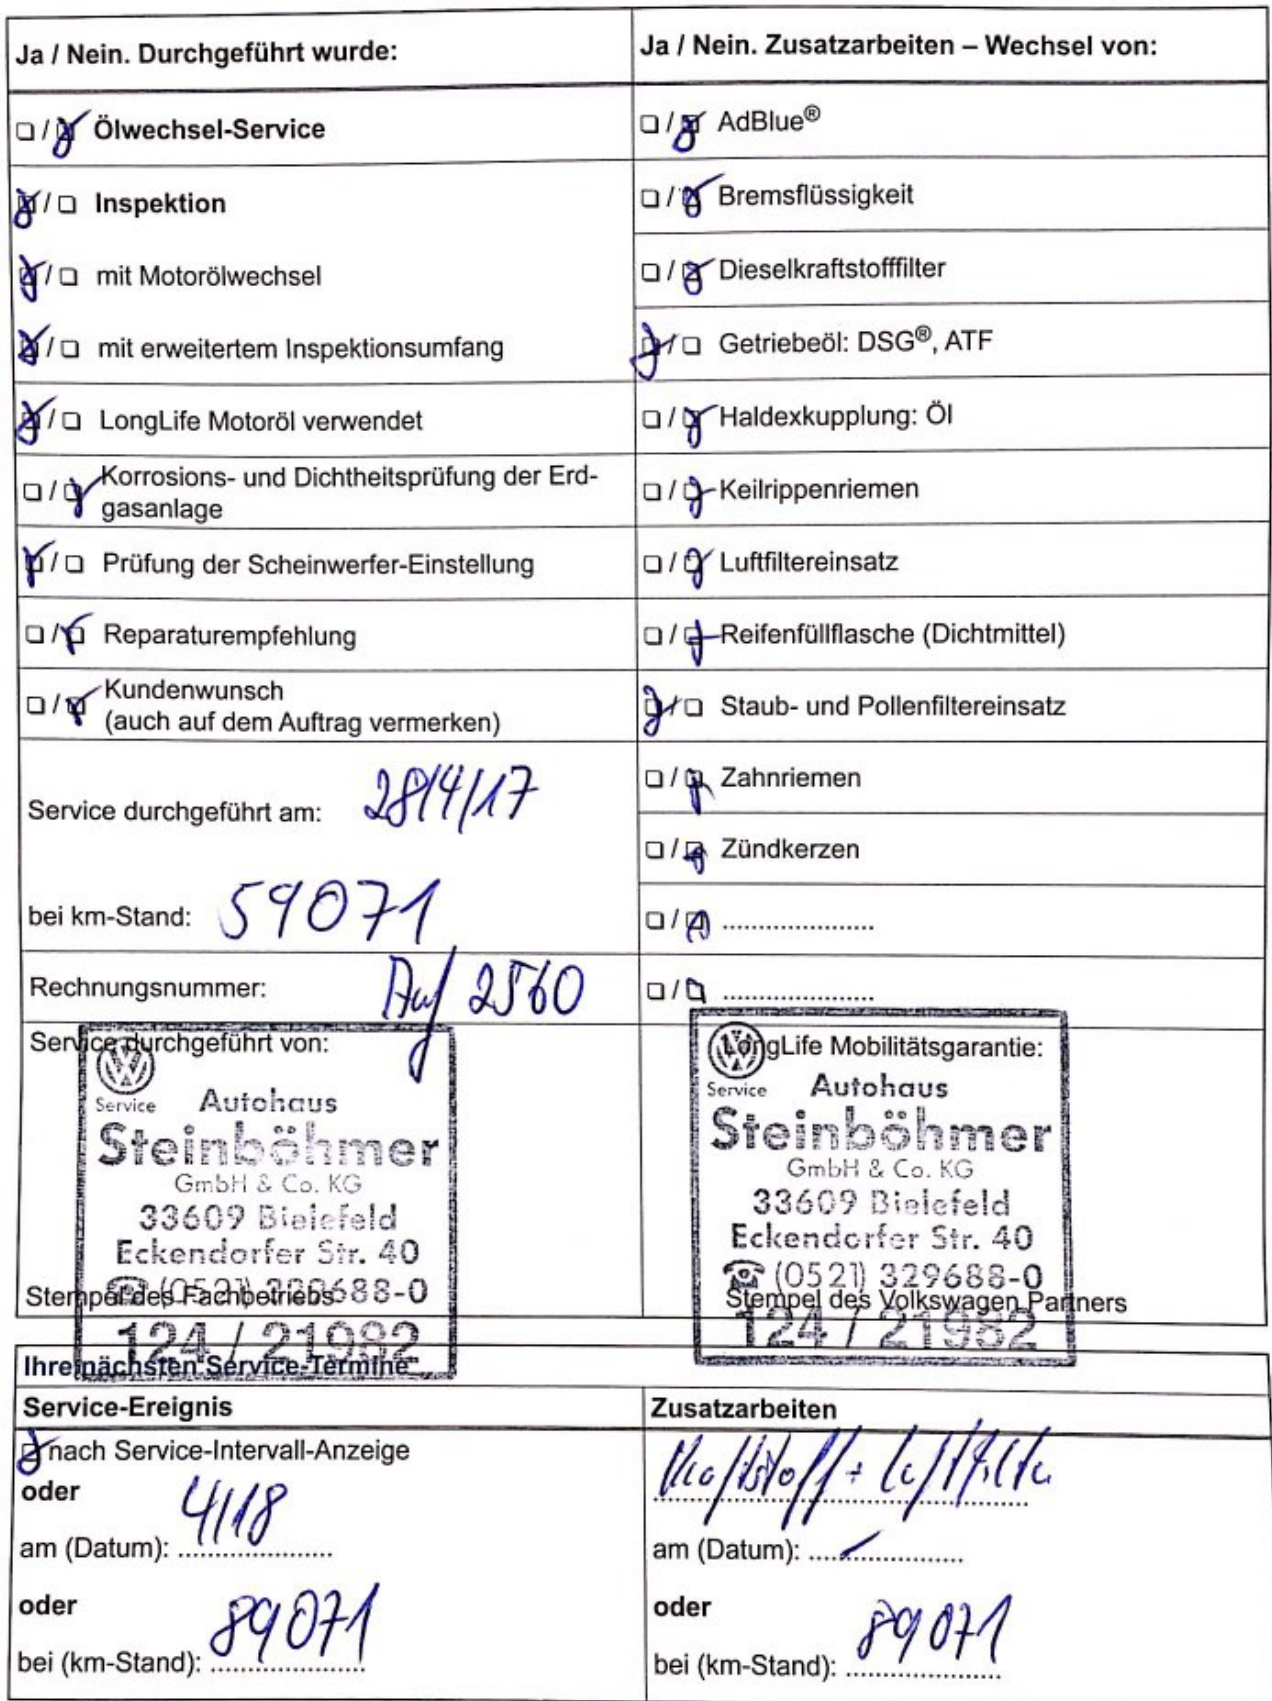 Ja / Nein. Durchgeführt wurde:
Ölwechsel-Service
Inspektion
mit Motorölwechsel
mit erweitertem Inspektionsumfang
LongLife Motoröl verwendet
Korrosions- und Dichtheitsprüfung der Erd-
gasanlage
Prüfung der Scheinwerfer-Einstellung
Reparaturempfehlung
Kundenwunsch
(auch auf dem Auftrag vermerken)
Service durchgeführt am: 28/4/17
bei km-Stand: 59071
Rechnungsnummer: Auf 2560
Service durchgeführt von:
Service Autohaus
Steinböhmer
GmbH & Co. KG
33609 Bielefeld
Eckendorfer Str. 40
(0521) 329688-0
Stempel des Fachbetriebs
124 / 21982
Ja / Nein. Zusatzarbeiten – Wechsel von:
AdBlue®
Bremsflüssigkeit
Dieselkraftstofffilter
Getriebeöl: DSG®, ATF
Haldexkupplung: Öl
Keilrippenriemen
Luftfiltereinsatz
Reifenfüllflasche (Dichtmittel)
Staub- und Pollenfiltereinsatz
Zahnriemen
Zündkerzen
LongLife Mobilitätsgarantie:
Service Autohaus
Steinböhmer
GmbH & Co. KG
33609 Bielefeld
Eckendorfer Str. 40
(0521) 329688-0
Stempel des Volkswagen Partners
124 / 21982
Ihre nächsten Service-Termine
Service-Ereignis
nach Service-Intervall-Anzeige
oder
am (Datum): 4/18
oder
bei (km-Stand): 89071
Zusatzarbeiten
Kraftstoff + Luftfilter
am (Datum): –
oder
bei (km-Stand): 89071